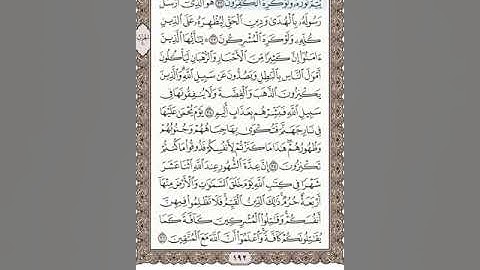 يُتِمَّ نُورَهُۥ وَلَوْ كَرِهَ ٱلْكَٰفِرُونَ ٣٢ هُوَ ٱلَّذِىٓ أَرْسَلَ
رَسُولَهُۥ بِٱلْهُدَىٰ وَدِينِ ٱلْحَقِّ لِيُظْهِرَهُۥ عَلَى ٱلدِّينِ
كُلِّهِۦ وَلَوْ كَرِهَ ٱلْمُشْرِكُونَ ٣٣ يَٰٓأَيُّهَا ٱلَّذِينَ
ءَامَنُوٓا۟ إِنَّ كَثِيرًا مِّنَ ٱلْأَحْبَارِ وَٱلرُّهْبَانِ لَيَأْكُلُونَ
أَمْوَٰلَ ٱلنَّاسِ بِٱلْبَٰطِلِ وَيَصُدُّونَ عَن سَبِيلِ ٱللَّهِ وَٱلَّذِينَ
يَكْنِزُونَ ٱلذَّهَبَ وَٱلْفِضَّةَ وَلَا يُنفِقُونَهَا فِى
سَبِيلِ ٱللَّهِ فَبَشِّرْهُم بِعَذَابٍ أَلِيمٍ ٣٤ يَوْمَ يُحْمَىٰ عَلَيْهَا
فِى نَارِ جَهَنَّمَ فَتُكْوَىٰ بِهَا جِبَاهُهُمْ وَجُنُوبُهُمْ
وَظُهُورُهُمْ هَٰذَا مَا كَنَزْتُمْ لِأَنفُسِكُمْ فَذُوقُوا۟ مَا كُنتُمْ
تَكْنِزُونَ ٣٥ إِنَّ عِدَّةَ ٱلشُّهُورِ عِندَ ٱللَّهِ ٱثْنَا عَشَرَ
شَهْرًا فِى كِتَٰبِ ٱللَّهِ يَوْمَ خَلَقَ ٱلسَّمَٰوَٰتِ وَٱلْأَرْضَ مِنْهَآ
أَرْبَعَةٌ حُرُمٌ ذَٰلِكَ ٱلدِّينُ ٱلْقَيِّمُ فَلَا تَظْلِمُوا۟ فِيهِنَّ
أَنفُسَكُمْ وَقَٰتِلُوا۟ ٱلْمُشْرِكِينَ كَآفَّةً كَمَا
يُقَٰتِلُونَكُمْ كَآفَّةً وَٱعْلَمُوٓا۟ أَنَّ ٱللَّهَ مَعَ ٱلْمُتَّقِينَ ٣٦
١٩٢